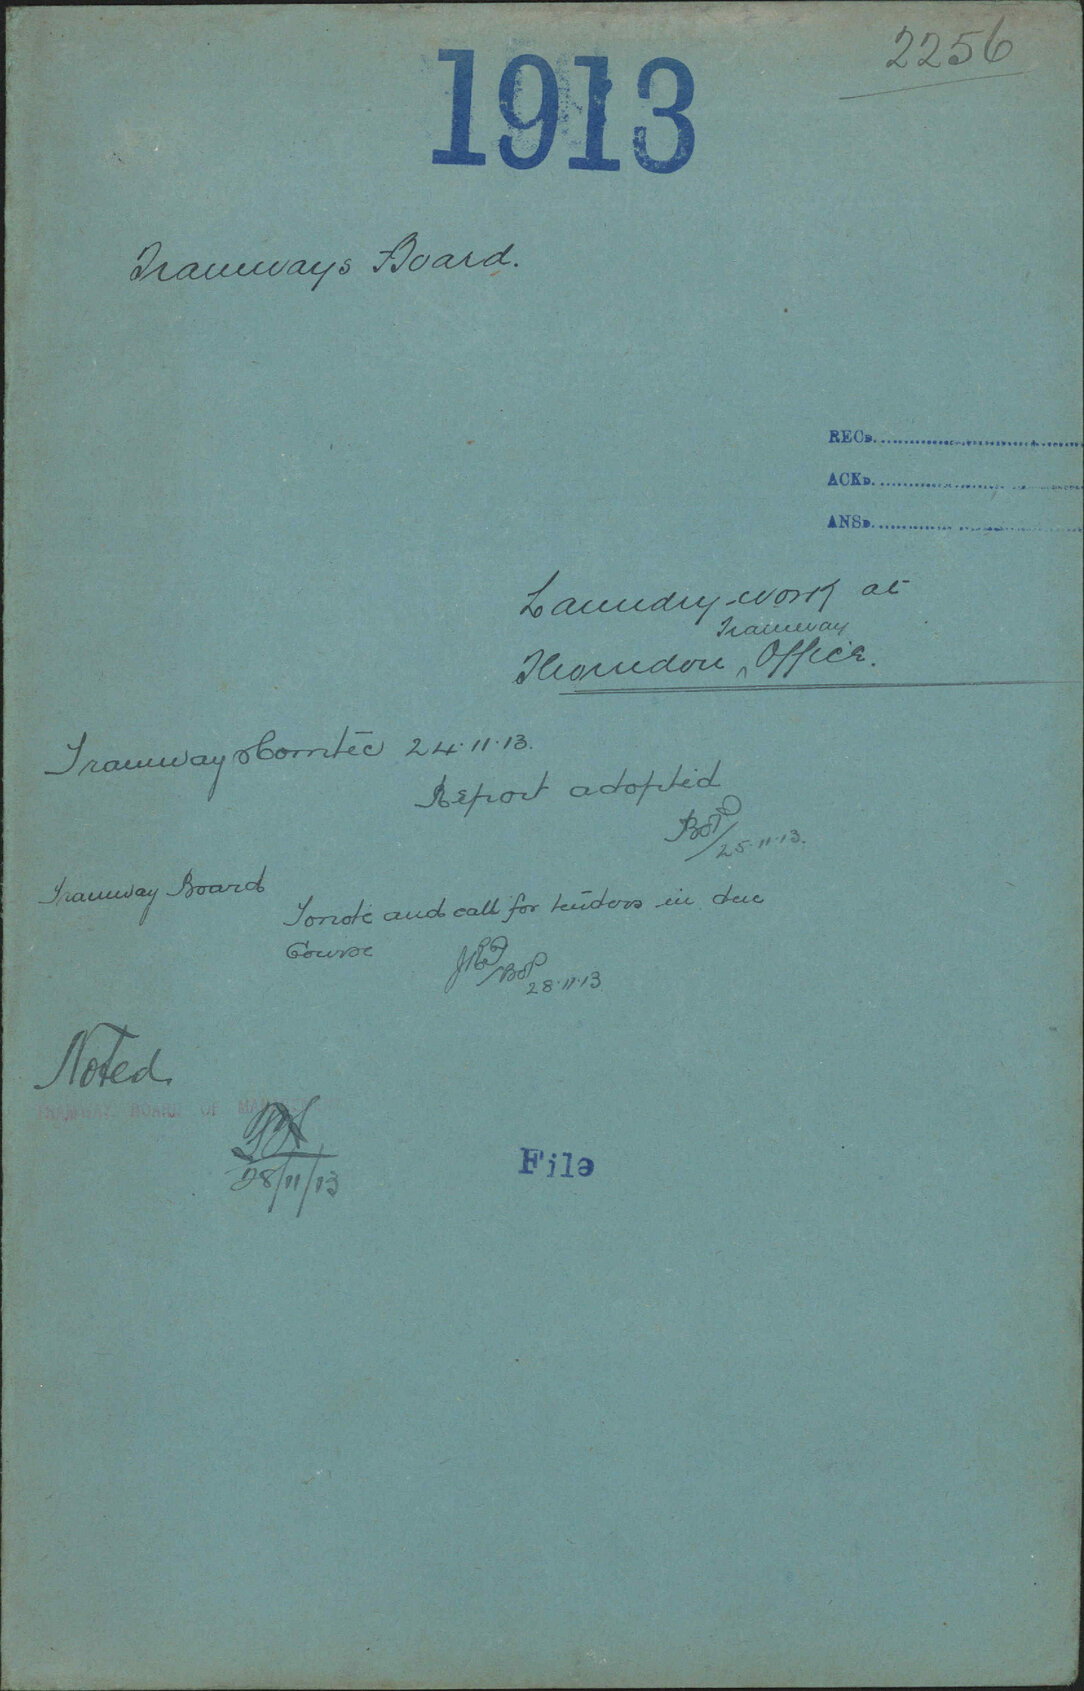 2256
1913
Tramways Board.
RECD.
ACKD.
ANSD.
Laundry-work at
Tramway
Thorndon ^ Office.
Tramway Comtee 24.11.13.
Report adopted
25.11.13.
Tramway Board
To note and call for tenders in due
Course
28.11.13
Noted
TRAMWAYS BOARD OF
28/11/13
File